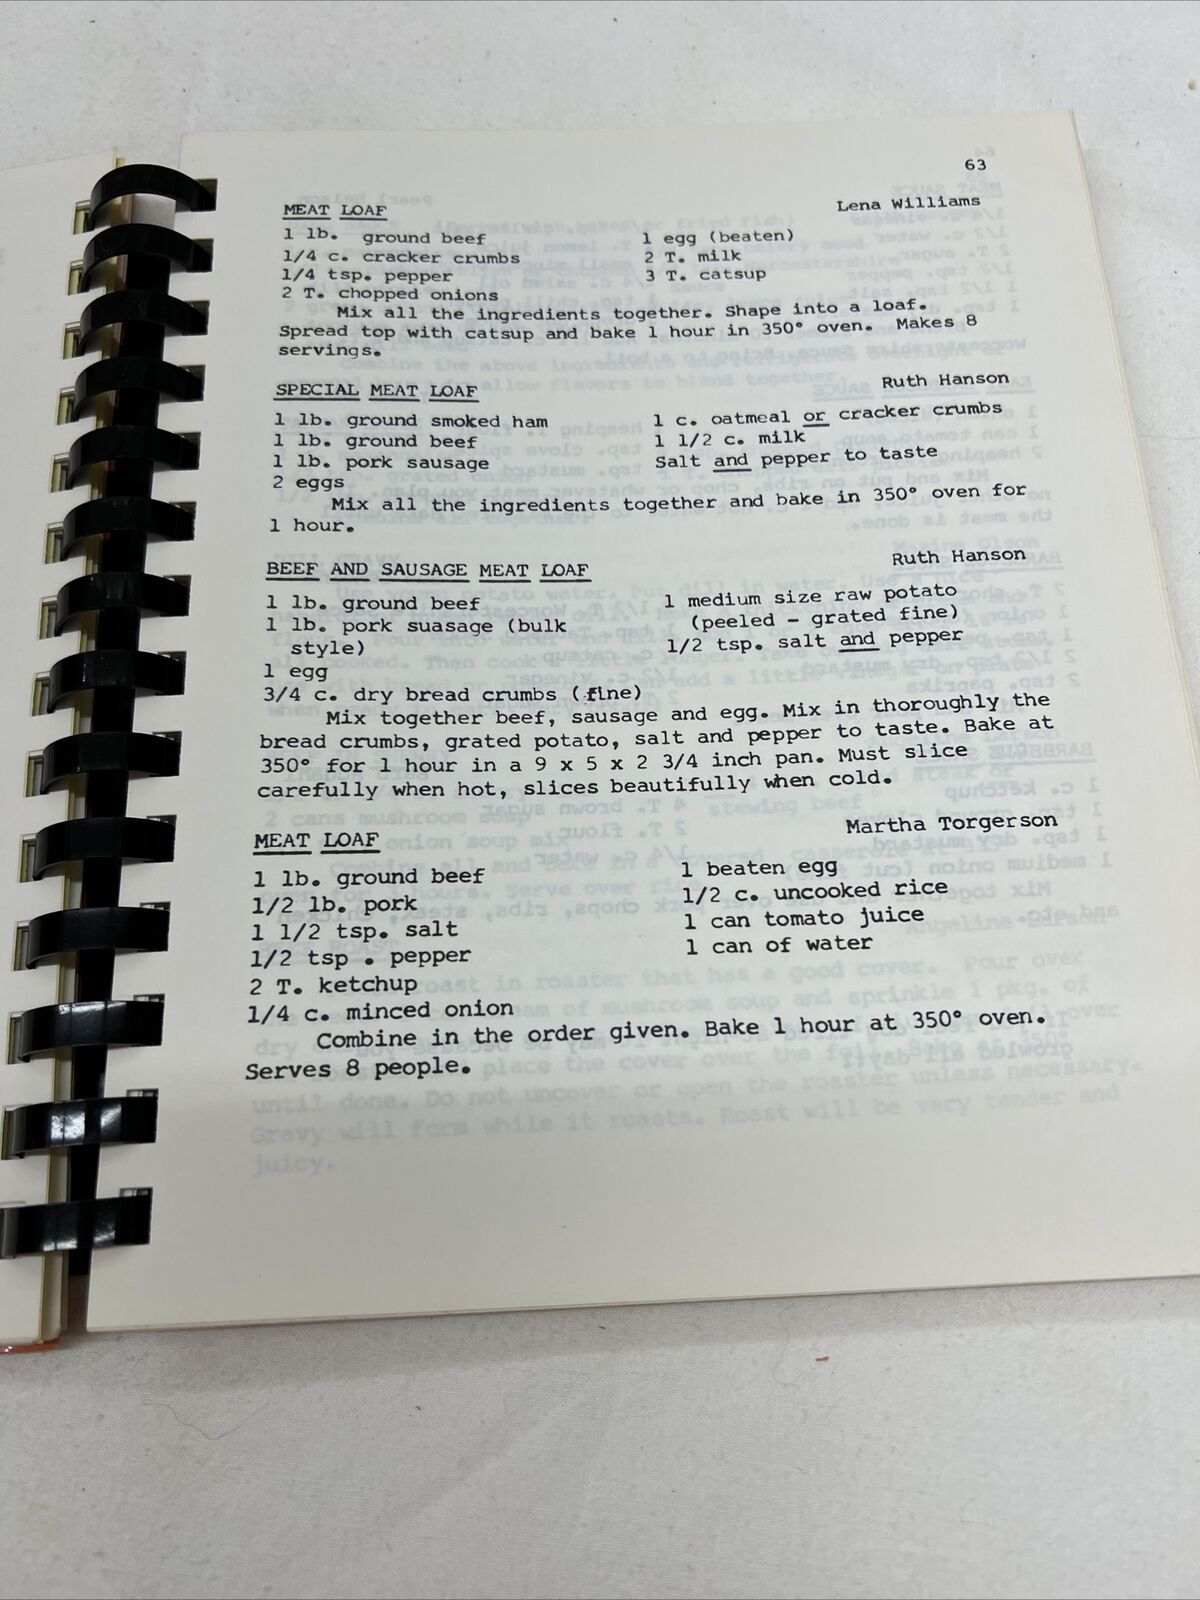 63
MEAT LOAF Lena Williams
1 lb. ground beef 1 egg (beaten)
1/4 c. cracker crumbs 2 T. milk
1/4 tsp. pepper 3 T. catsup
2 T. chopped onions
Mix all the ingredients together. Shape into a loaf.
Spread top with catsup and bake 1 hour in 350° oven. Makes 8
servings.
SPECIAL MEAT LOAF Ruth Hanson
1 lb. ground smoked ham 1 c. oatmeal or cracker crumbs
1 lb. ground beef 1 1/2 c. milk
1 lb. pork sausage Salt and pepper to taste
2 eggs
Mix all the ingredients together and bake in 350° oven for
1 hour.
BEEF AND SAUSAGE MEAT LOAF Ruth Hanson
1 lb. ground beef 1 medium size raw potato
1 lb. pork suasage (bulk (peeled - grated fine)
style) 1/2 tsp. salt and pepper
1 egg
3/4 c. dry bread crumbs (fine)
Mix together beef, sausage and egg. Mix in thoroughly the
bread crumbs, grated potato, salt and pepper to taste. Bake at
350° for 1 hour in a 9 x 5 x 2 3/4 inch pan. Must slice
carefully when hot, slices beautifully when cold.
MEAT LOAF Martha Torgerson
1 lb. ground beef 1 beaten egg
1/2 lb. pork 1/2 c. uncooked rice
1 1/2 tsp. salt 1 can tomato juice
1/2 tsp . pepper 1 can of water
2 T. ketchup
1/4 c. minced onion
Combine in the order given. Bake 1 hour at 350° oven.
Serves 8 people.